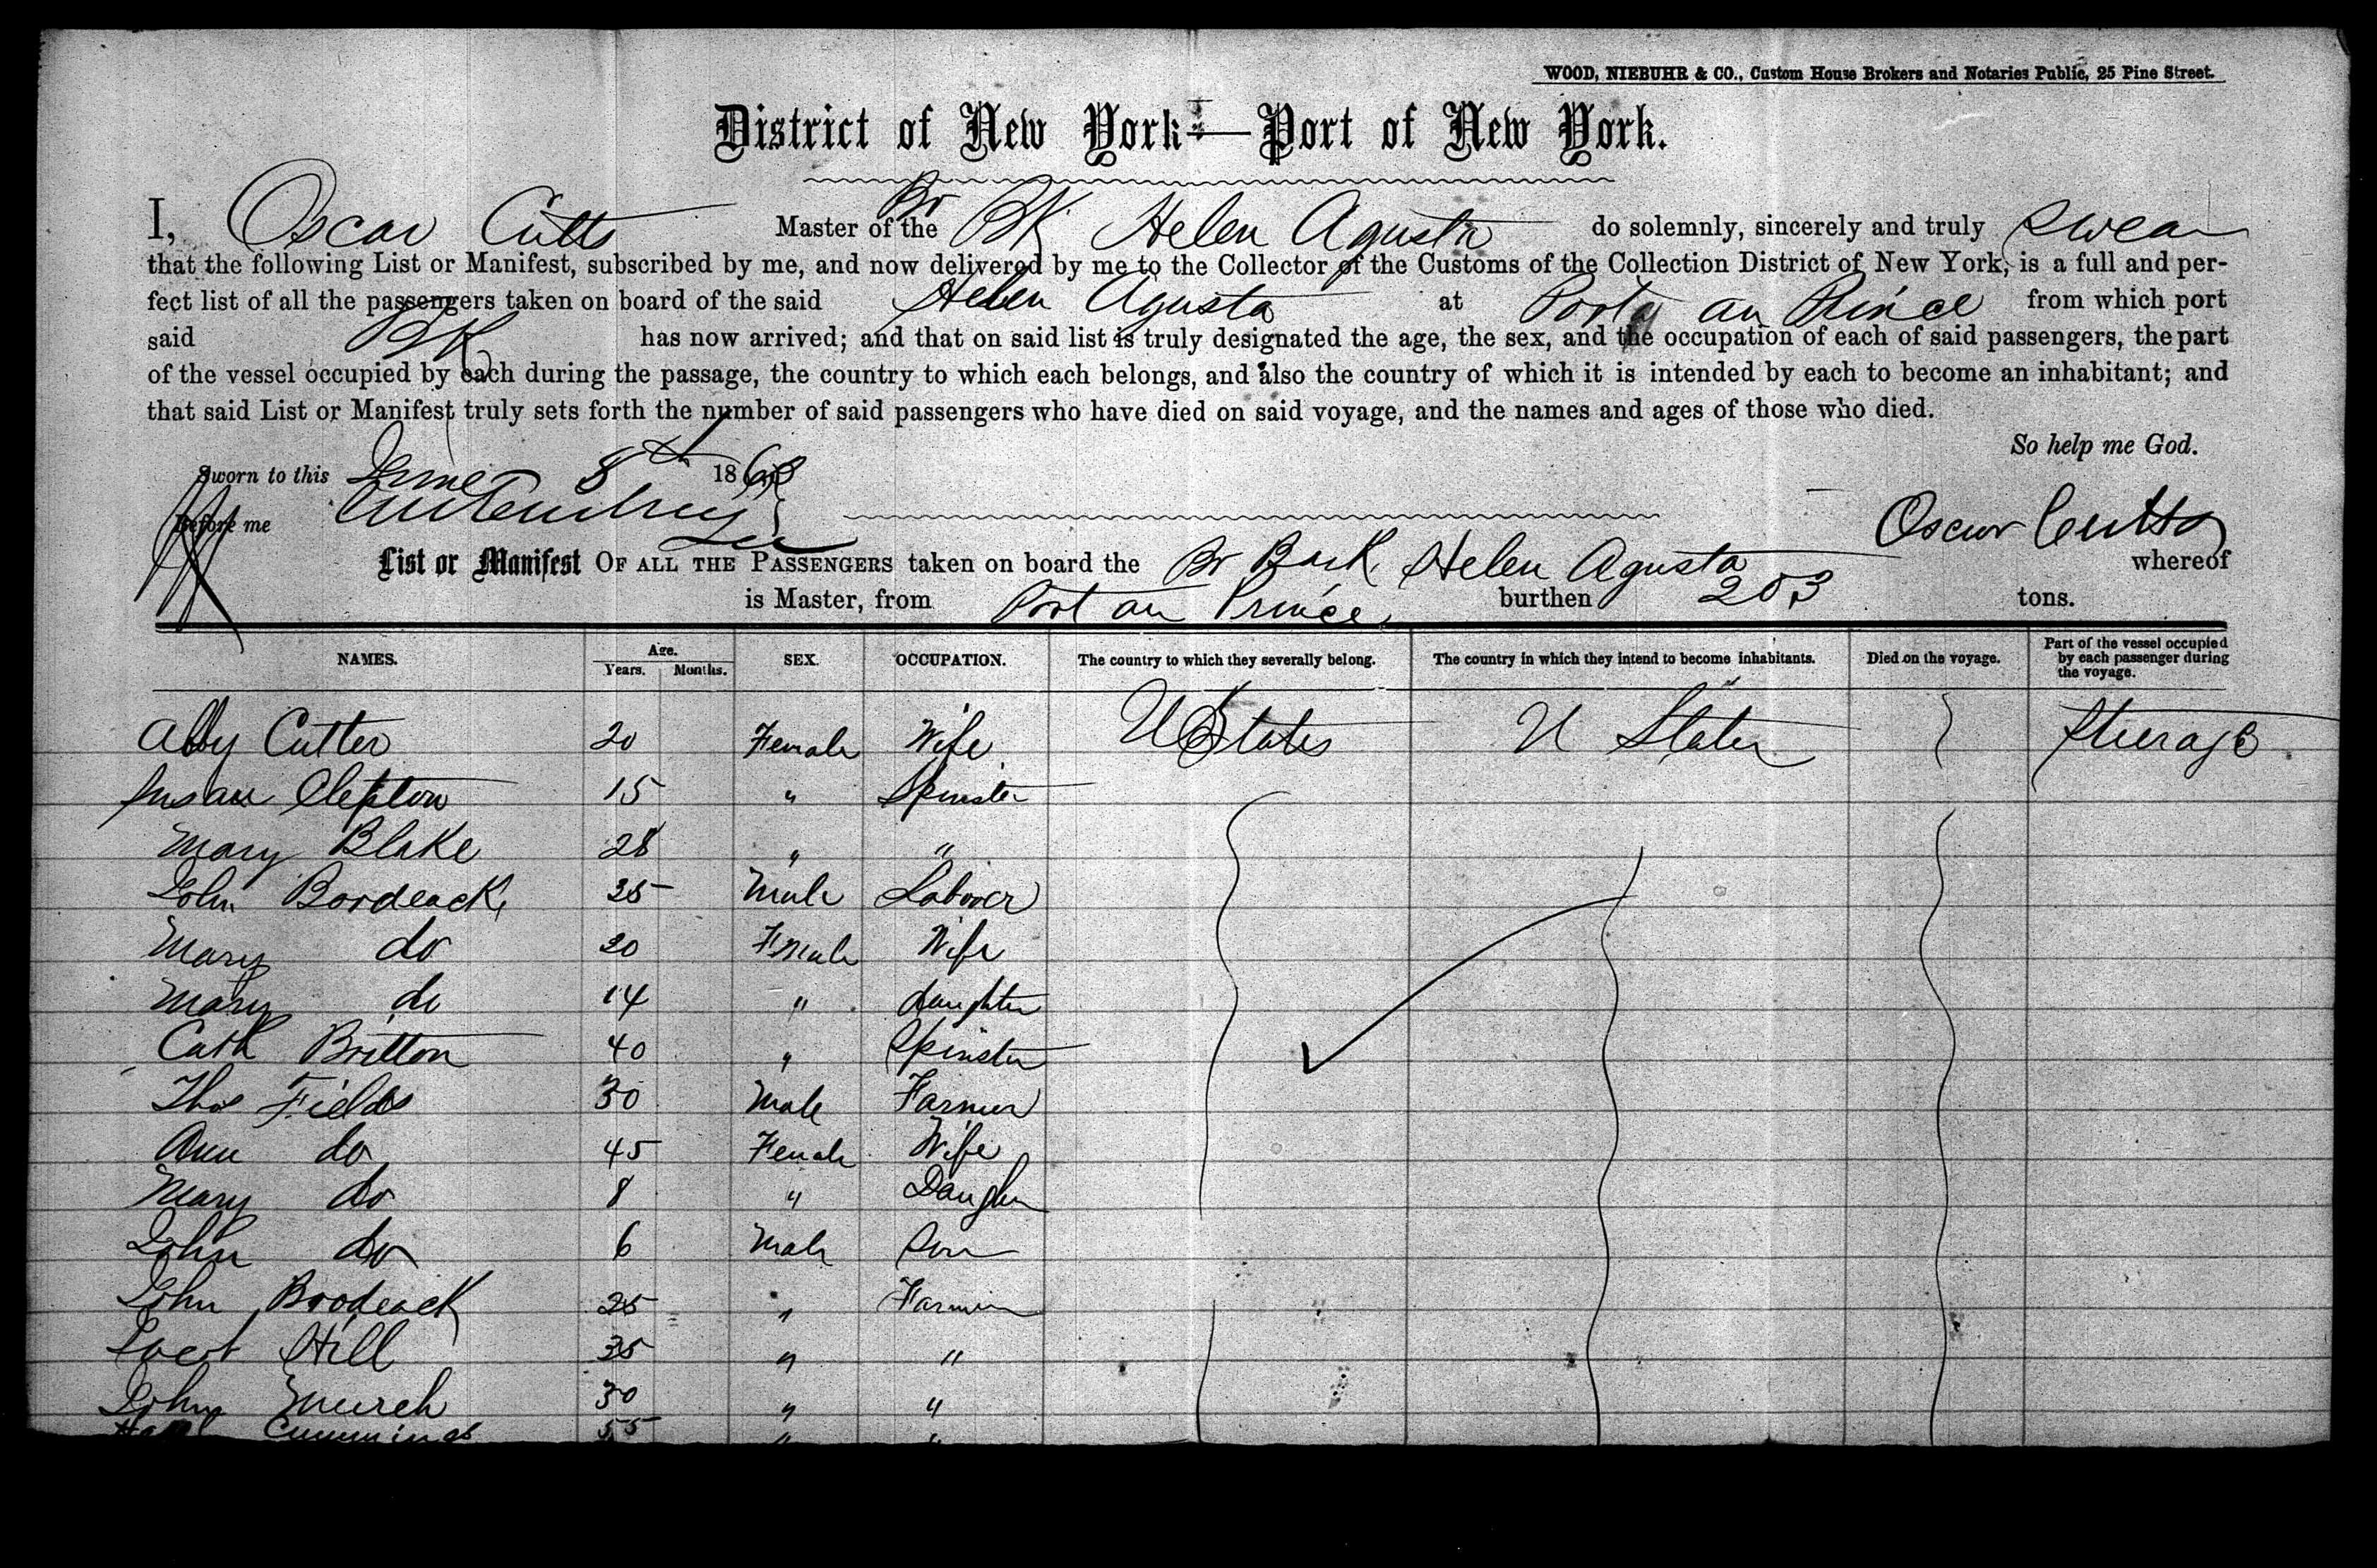 WOOD, NIEBUHR & CO., Custom House Brokers and Notaries Public, 25 Pine Street.
District of New York—Port of New York.
I, Oscar Cutts Master of the Br Bk Helen Agusta do solemnly, sincerely and truly swear
that the following List or Manifest, subscribed by me, and now delivered by me to the Collector of the Customs of the Collection District of New York, is a full and per-
fect list of all the passengers taken on board of the said Helen Agusta at Port au Prince from which port
said Bk has now arrived; and that on said list is truly designated the age, the sex, and the occupation of each of said passengers, the part
of the vessel occupied by each during the passage, the country to which each belongs, and also the country of which it is intended by each to become an inhabitant; and
that said List or Manifest truly sets forth the number of said passengers who have died on said voyage, and the names and ages of those who died.
So help me God.
Sworn to this June 8th 1868
Before me
Oscar Cutts
List or Manifest OF ALL THE PASSENGERS taken on board the Br Bark Helen Agusta whereof
is Master, from Port au Prince burthen 203 tons.
NAMES. Age. Years. Months. SEX. OCCUPATION. The country to which they severally belong. The country in which they intend to become inhabitants. Died on the voyage. Part of the vessel occupied by each passenger during the voyage.
Abby Cutter 20 Female Wife U States U States Steerage
Susan Clepton 15 " Spinster
Mary Blake 28 " "
John Bordeack 25 Male Labour
Mary do 20 Female Wife
Mary do 14 " daughter
Cath Britton 40 " Spinster
Thos Fields 30 Male Farmer
Ann do 45 Female Wife
Mary do 8 " Daughter
John do 6 Male Son
John Brodeack 25 " Farmer
Hill 35 " "
John Murch 30 " "
Cummings 55 " "